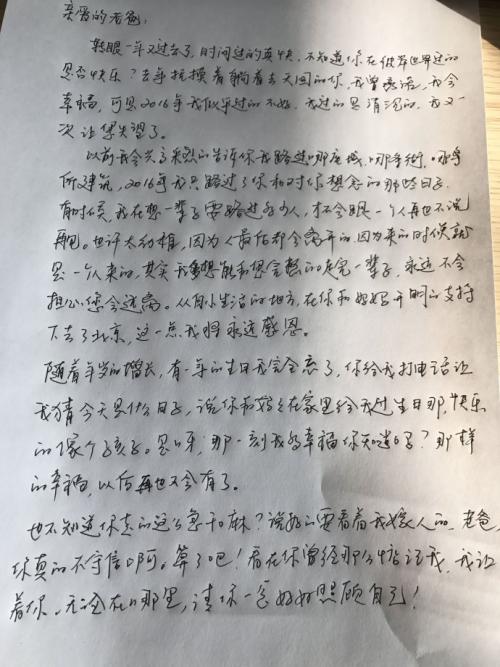 亲爱的老爸：
转眼一年又过去了，时间过的真快，不知道你在彼岸世界过的
是否快乐？去年抚摸着躺着去天国的你，我曾承诺，我会
幸福，可是2016年我似乎过的不好，我过的是消沉的，我又一
次让您失望了。
以前我会兴高采烈的告诉你我路过哪座城，哪条街，哪
所建筑，2016年我只路过了你和对你想念的那些日子。
有时候，我在想一辈子要路过多少人，才不会跟一个人再也不说
再见。也许太幼稚，因为人最后都会离开的，因为来的时候就
是一个人来的，其实我多想能和您完整的走完一辈子，永远不会
担心您会逃离。从自小生活的地方，在你和妈妈开明的支持
下去了北京，这一点我将永远感恩。
随着年岁的增长，有一年的生日我完全忘了，你给我打电话让
我猜今天是什么日子，说你和妈妈在家里给我过生日那，快乐
的像个孩子。是呀，那一刻我的幸福你知道吗？那样
的幸福，以后再也不会有了。
也不知道你走的这么急干嘛？说好的要看着我嫁人的，老爸，
你真的不守信啊。算了吧！看在你曾经那么惯着我，我让
着你。无论在哪里，请你一定好好照顾自己！